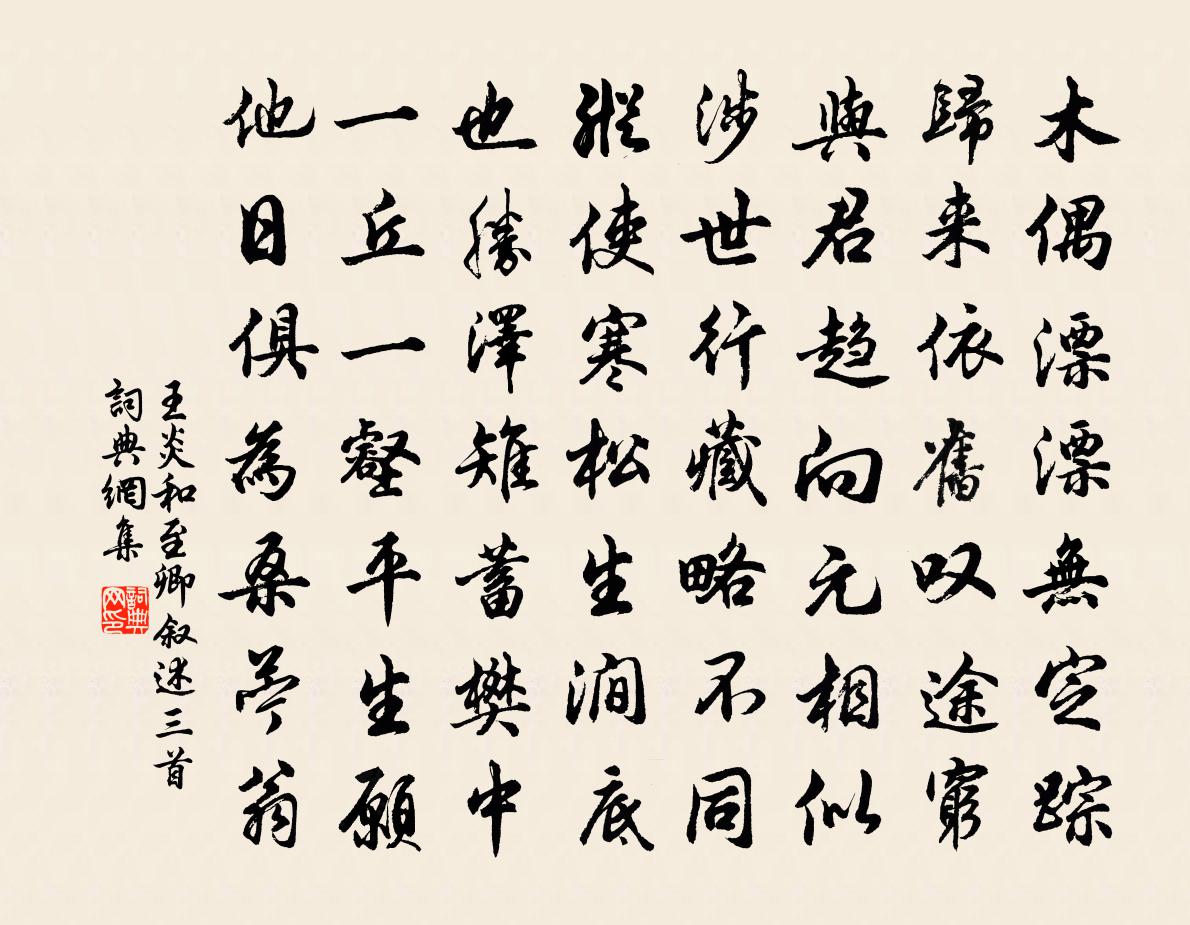 木偶漂漂無定踪
歸来依舊叹途窮
與君趋向元相似
涉世行藏略不同
縱使寒松生澗底
也勝澤雉蓄樊中
一丘一壑平生願
他日俱為桑苎翁
王炎和至卿叙述三首
詞典網集
詞典网印